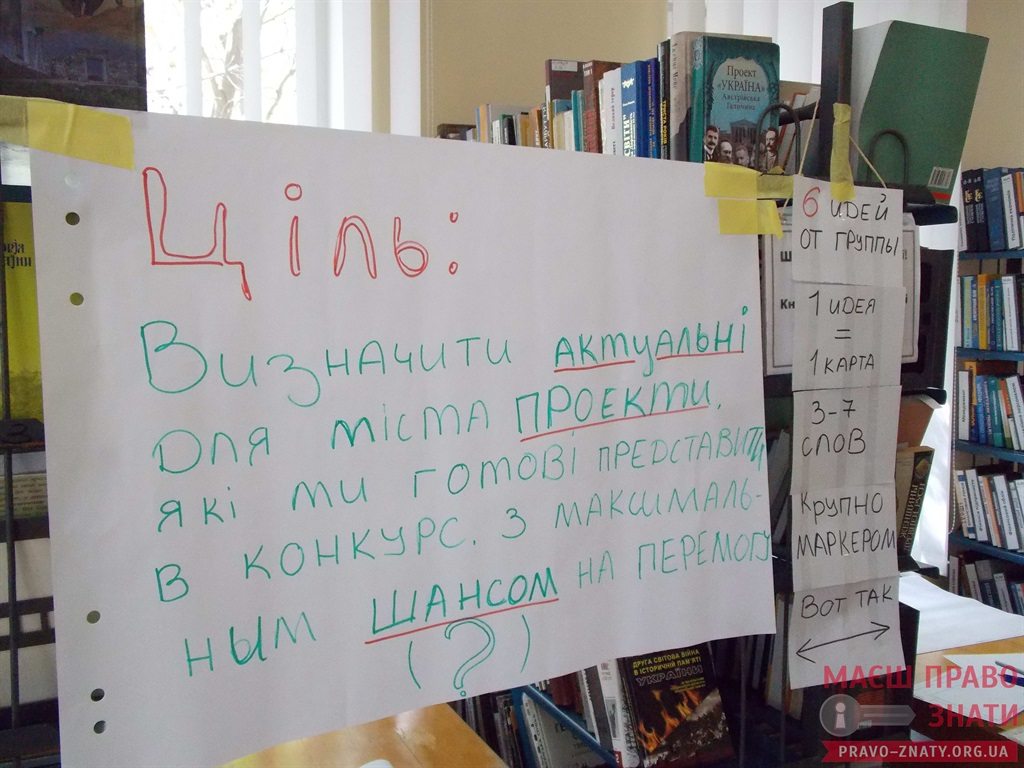 Ціль:
Визначити актуальні
для міста проекти,
які ми готові представити
в конкурс. З максималь-
ным шансом на перемогу
(?)
6 идей
от группы
1 идея
=
1 карта
3-7
слов
Крупно
маркером
Вот так
Проект
«УКРАЇНА»
Австрійська
Галичина
ДРУГА СВІТОВА ВІЙНА
В ІСТОРИЧНІЙ ПАМ'ЯТІ
УКРАЇНИ
МАЄШ ПРАВО
ЗНАТИ
PRAVO-ZNATY.ORG.UA